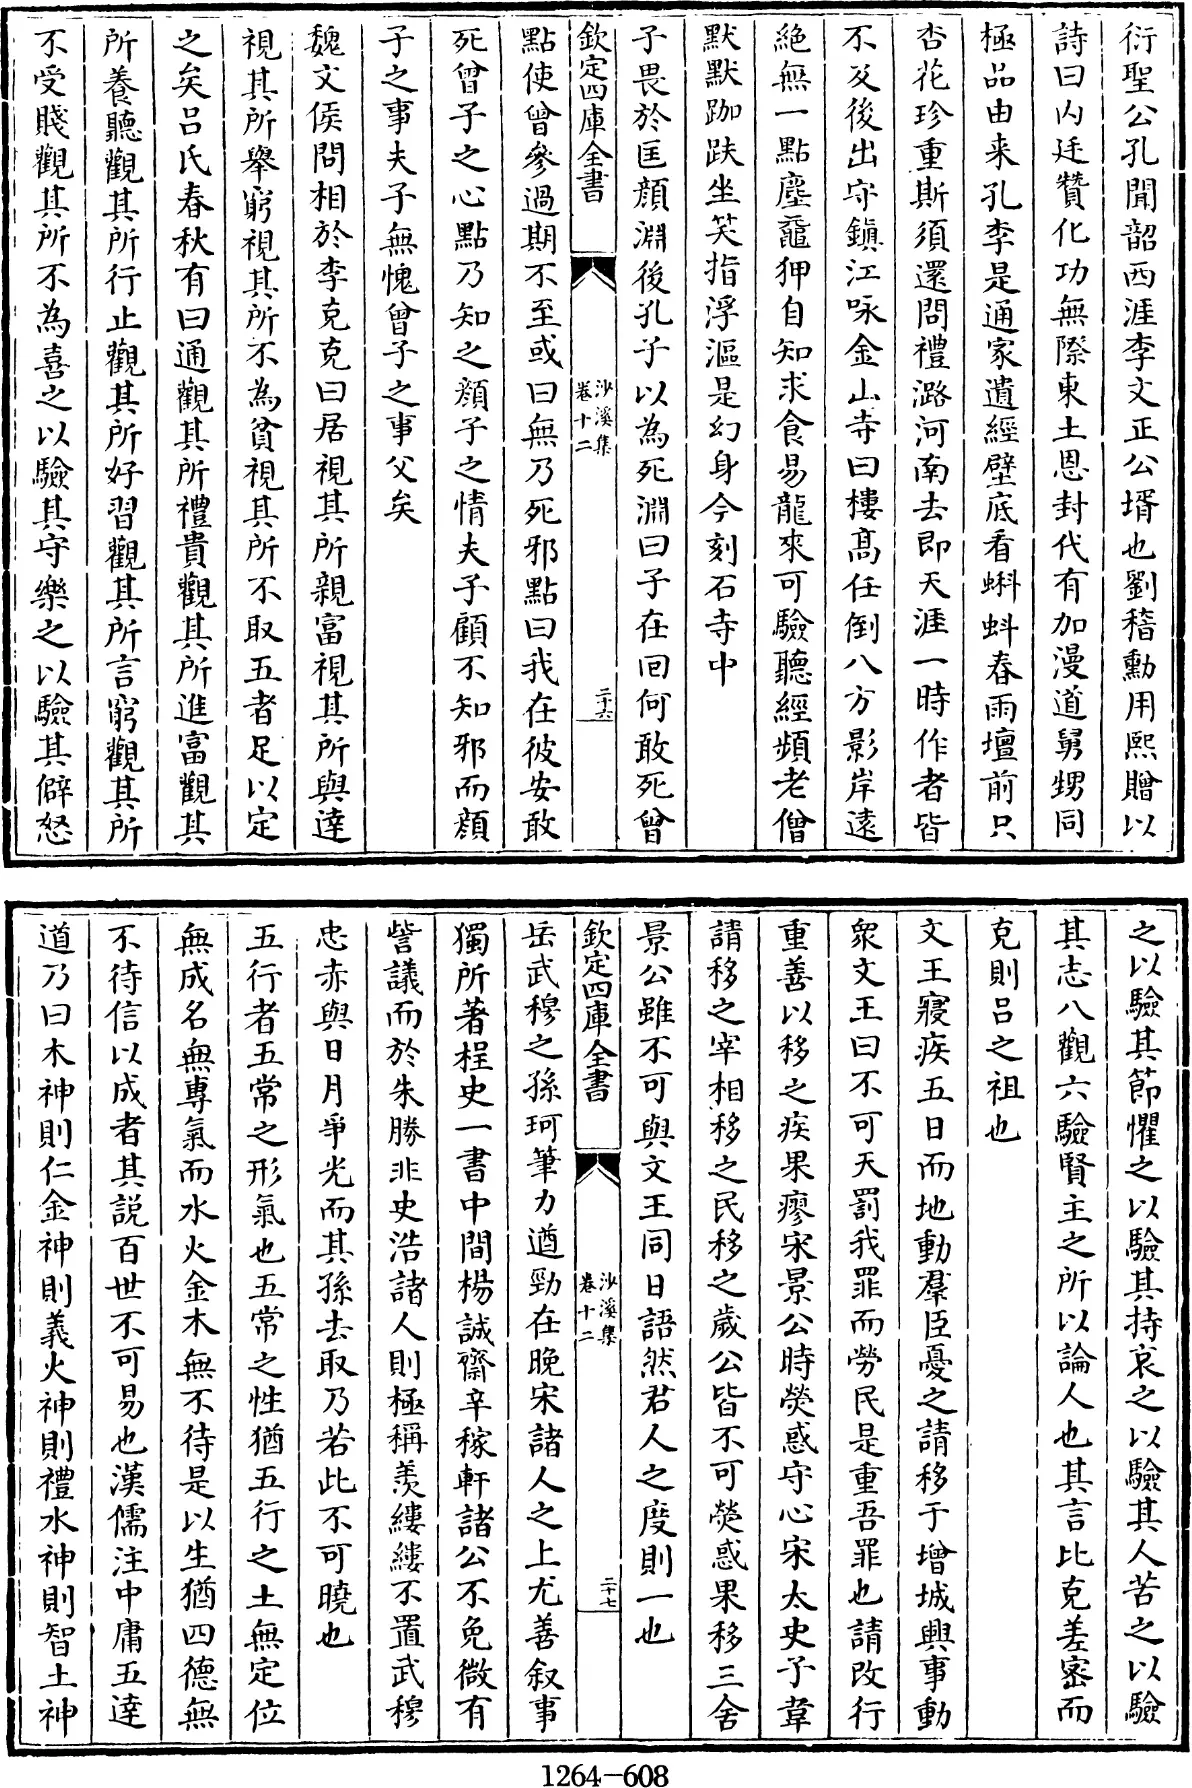 衍聖公孔聞韶西涯李文正公壻也劉稽勳用熙贈以
詩曰内廷贊化功無際東土恩封代有加漫道舅甥同
極品由来孔李是通家遺經壁底看蝌蚪春雨壇前只
杏花珍重斯須還問禮潞河南去即天涯一時作者皆
不及後出守鎮江咏金山寺曰樓髙任倒八方影岸遠
絶無一點塵黿狎自知求食易龍來可驗聽經頻老僧
默默跏趺坐笑指浮漚是幻身今刻石寺中
子畏於匡顔淵後孔子以為死淵曰子在回何敢死曾
欽定四庫全書
沙溪集
卷十二
二十六
點使曾參過期不至或曰無乃死邪點曰我在彼安敢
死曾子之心點乃知之顔子之情夫子顧不知邪而顔
子之事夫子無愧曾子之事父矣
魏文侯問相於李克克曰居視其所親富視其所與達
視其所舉窮視其所不為貧視其所不取五者足以定
之矣吕氏春秋有曰通觀其所禮貴觀其所進富觀其
所養聽觀其所行止觀其所好習觀其所言窮觀其所
不受賤觀其所不為喜之以驗其守樂之以驗其僻怒
之以驗其節懼之以驗其持哀之以驗其人苦之以驗
其志八觀六驗賢主之所以論人也其言比克差密而
克則吕之祖也
文王寢疾五日而地動羣臣憂之請移于增城興事動
衆文王曰不可天罰我罪而勞民是重吾罪也請改行
重善以移之疾果瘳宋景公時熒惑守心宋太史子韋
請移之宰相移之民移之歲公皆不可熒惑果移三舍
景公雖不可與文王同日語然君人之度則一也
欽定四庫全書
沙溪集
卷十二
二十七
岳武穆之孫珂筆力遒勁在晚宋諸人之上尤善叙事
獨所著桯史一書中間楊誠齋辛稼軒諸公不免微有
訾議而於朱勝非史浩諸人則極稱羨縷縷不置武穆
忠赤與日月爭光而其孫去取乃若此不可曉也
五行者五常之形氣也五常之性猶五行之土無定位
無成名無專氣而水火金木無不待是以生猶四德無
不待信以成者其説百世不可易也漢儒注中庸五達
道乃曰木神則仁金神則義火神則禮水神則智土神
1264—608